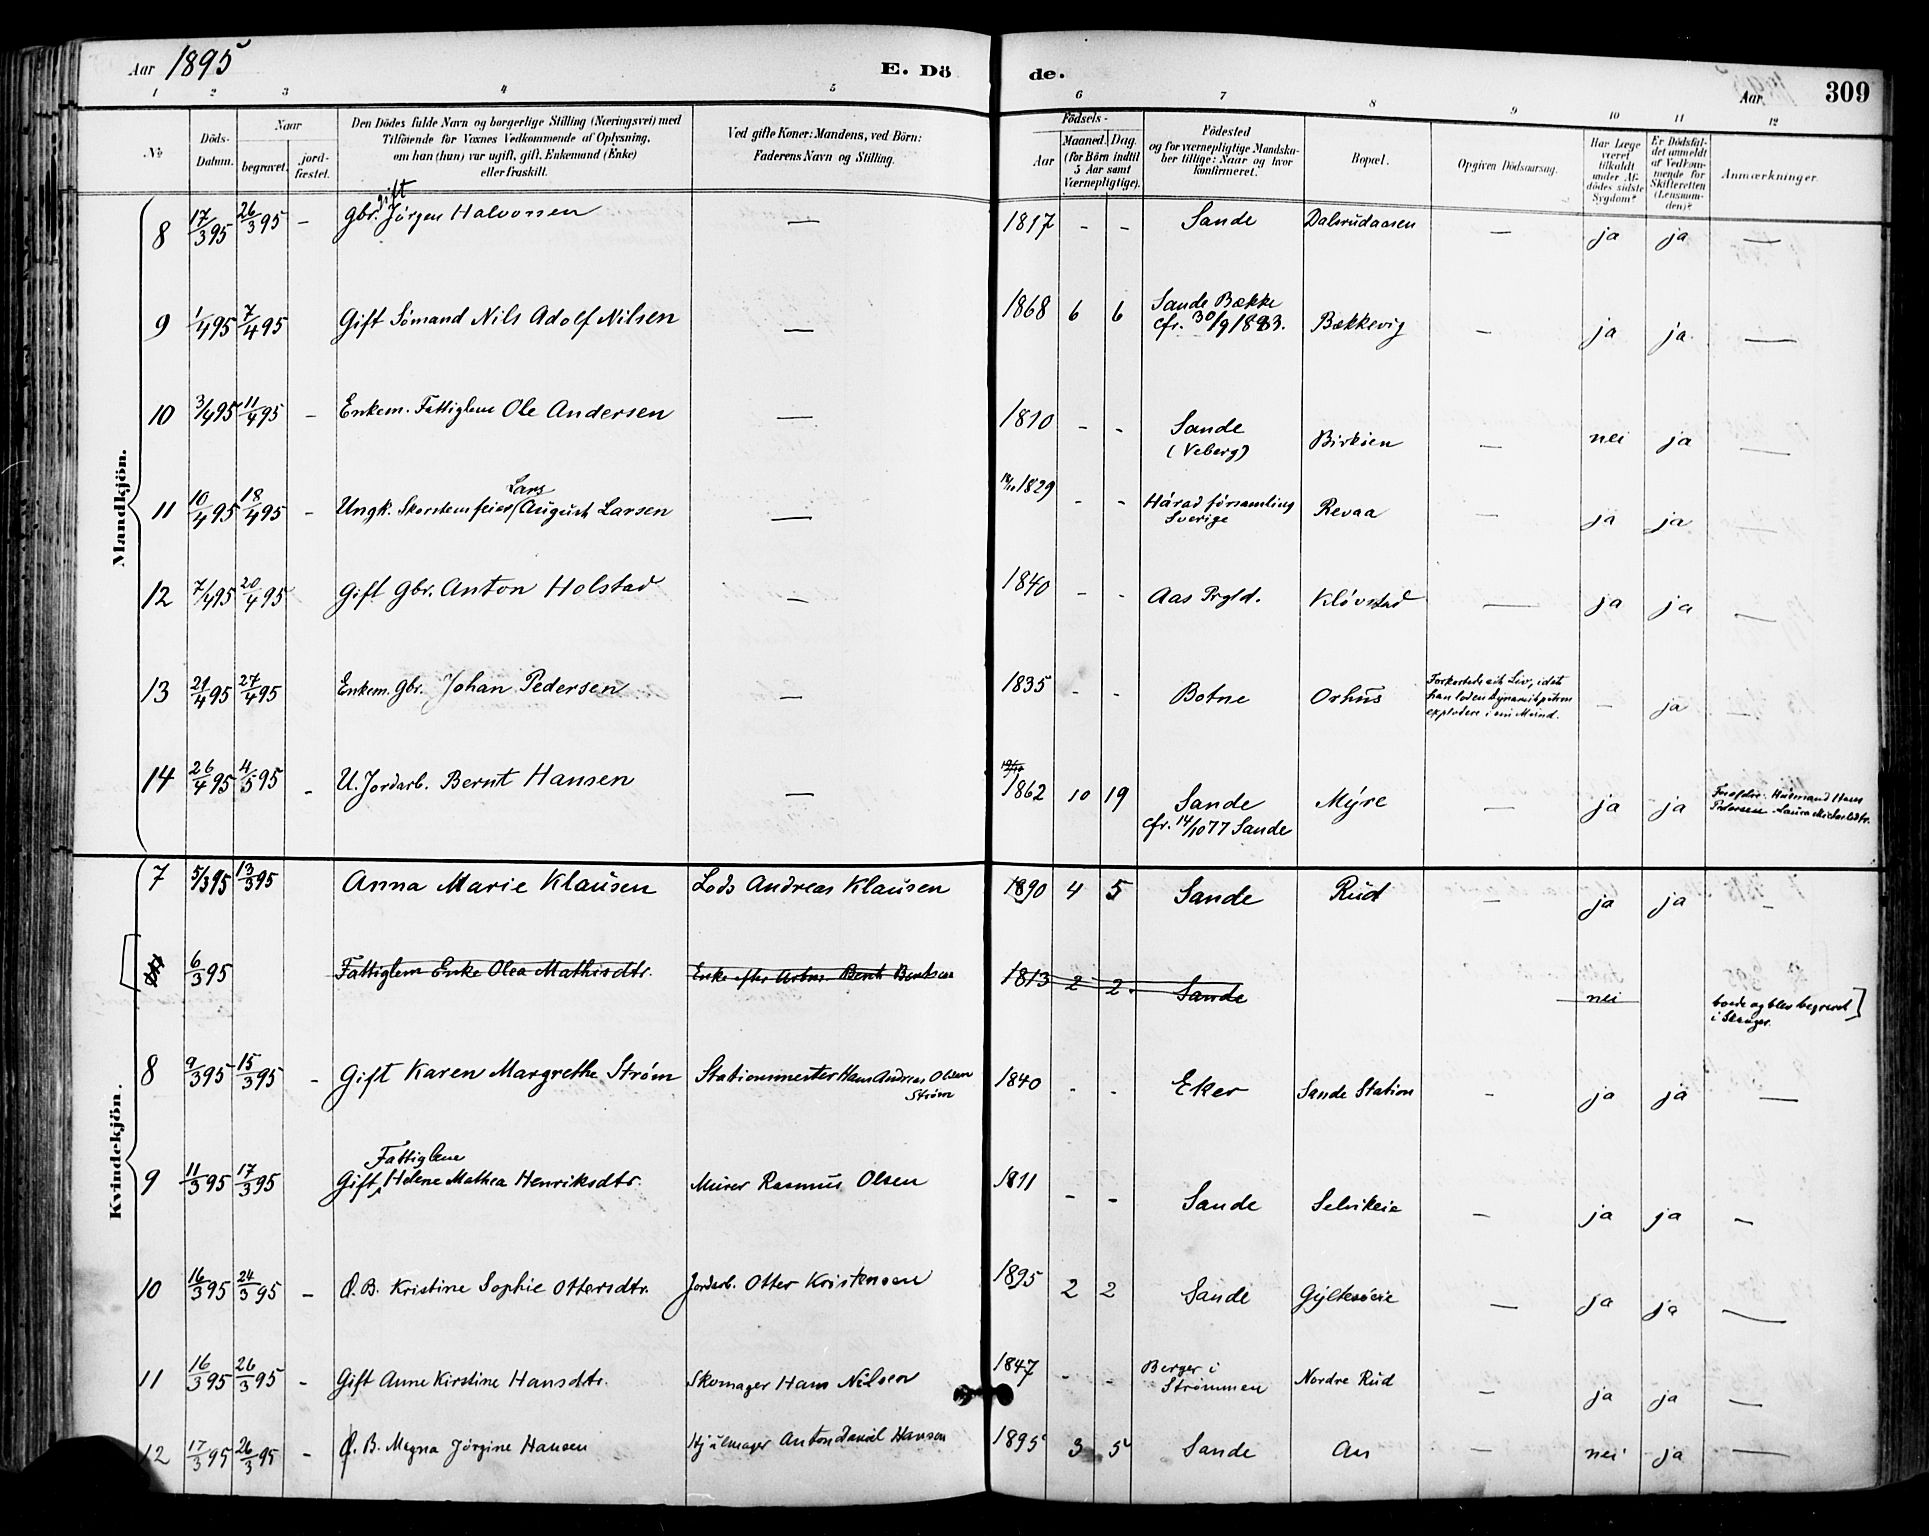 Aar 1895
E. Dö de.
Aar
309
1 2 3 4 5 6 7 8 9 10 11 12
No
Döds-
Datum.
Naar
begravet.
jord-
fæstet.
Den Dödes fulde Navn og borgerlige Stilling (Næringsvei) med
Tilföiende for Voxnes Vedkommende af Oplysning,
om han (hun) var ugift, gift, Enkemand (Enke)
eller fraskilt.
Ved gifte Koner: Mandens, ved Börn:
Faderens Navn og Stilling.
Födsels-
Aar
Maaned. Dag.
(for Börn indtil
5 Aar samt
Værnepligtige).
Födested
og for værnepligtige Mandska-
ber tillige: Naar og hvor
konfirmeret.
Bopæl.
Opgiven Dödsaarsag.
Har Læge
været
tilkaldt
under Af-
dödes sidste
Sygdom?
Er Dödsfal-
det anmeldt
af Vedkom-
mende for
Skifteretten
(Lensman-
den)?
Anmærkninger.
Mandkjön.
gift
8 17/3 95 26/3 95 – Gbr. Jörgen Halvorsen — 1817 - - Sande Dalsrudaasen — ja ja —
9 1/4 95 7/4 95 Gift Sömand Nils Adolf Nilsen — 1868 6 6 Sande Bække
cfr. 30/9 1883. Bækkevig — ja ja. —
10 3/4 95 11/4 95 – Enkem. Fattiglem Ole Andersen — 1810 - - Sande
(Veberg) Birköen — nei ja —
Lars
11 10/4 95 18/4 95 – Ungk. Skorstensfeier August Larsen — 1829 - - Hárad församling
Sverige Revaa — ja ja —
12 7/4 95 20/4 95 Gift Gbr. Anton Holstad — 1840 - - Aas Prgld. Klövstad — ja ja —
13 21/4 95 27/4 95 Enkem. Gbr. Johan Pedersen — 1835 - - Botne Orhus Forkortede sit Liv, idet
han lod en Dynamitpatron
explodere i sin Mund. – ja —
14 26/4 95 4/5 95 – U. Jordarb. Bernt Hansen — 1862 10 19 Sande
cfr. 14/10 77 Sande Myre — ja ja Forældre: Husmand Hans
Pedersen
Kvindekjön.
7 5/3 95 13/3 95 Anna Marie Klausen Lods Andreas Klausen 1890 4 5 Sande Rud – ja ja –
6/3 95 Fattiglem Enke Olea Mathisdtr. Enke efter Arbm. Bernt Berntsen 1813 2 2. Sande nei boede og blev begravet
i Skauger.
8 9/3 95 15/3 95 – Gift Karen Margrethe Ström Stationsmester Hans Andreas Olsen
Ström 1840 - - Eker Sande Station – ja ja —
Fattiglem
9 11/3 95 17/3 95 Gift Helene Mathea Henriksdtr. Murer Rasmus Olsen 1811 - - Sande Selvikeie — ja ja –
10 16/3 95 24/3 95 – Æ. B. Kristine Sophie Ottersdtr. Jordarb. Otter Kristensen 1895 2 2 Sande Gyltesöeie — ja ja —
11 16/3 95 26/3 95 – Gift Anne Kirstine Hansdtr. Skomager Hans Nilsen 1847 - - Berger i
Strömmen Nordre Rud — ja ja —
12 17/3 95 26/3 95 – Æ. B. Magna Jörgine Hansen Hjulmager Anton Daniel Hansen 1895 3 5 Sande Aas — nei ja —